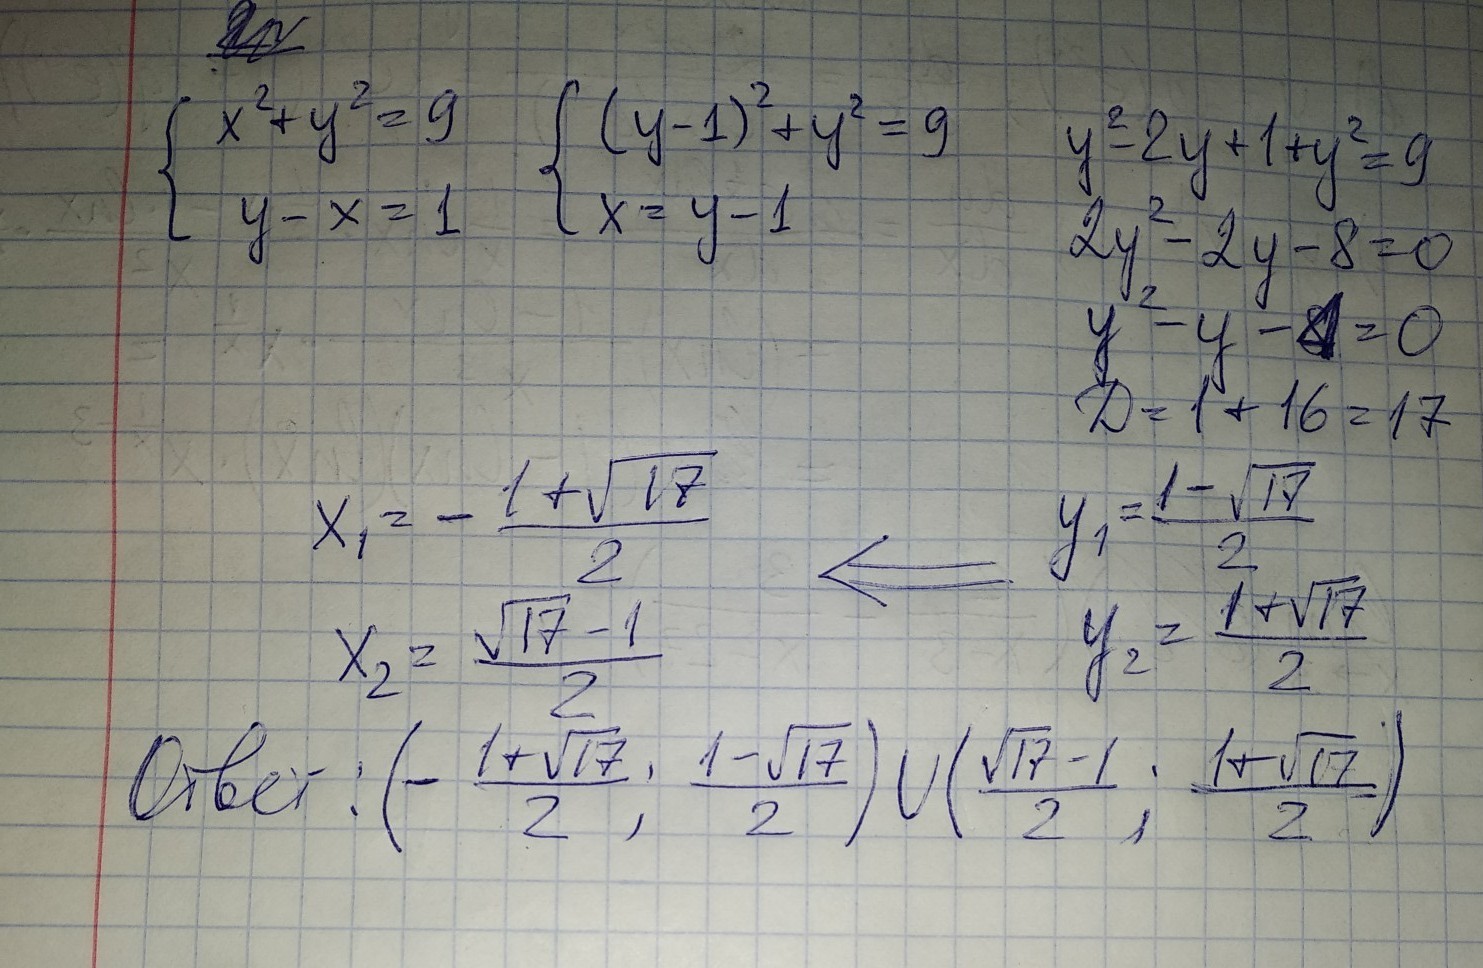 { x² + y² = 9
y - x = 1
{ (y-1)² + y² = 9
x = y - 1
y² - 2y + 1 + y² = 9
2y² - 2y - 8 = 0
y² - y - 4 = 0
D = 1 + 16 = 17
y₁ = (1 - √17)/2
y₂ = (1 + √17)/2
⇐
x₁ = - (1 + √17)/2
x₂ = (√17 - 1)/2
Ответ: (- (1+√17)/2 ; (1-√17)/2) ∪ ((√17-1)/2 ; (1+√17)/2)